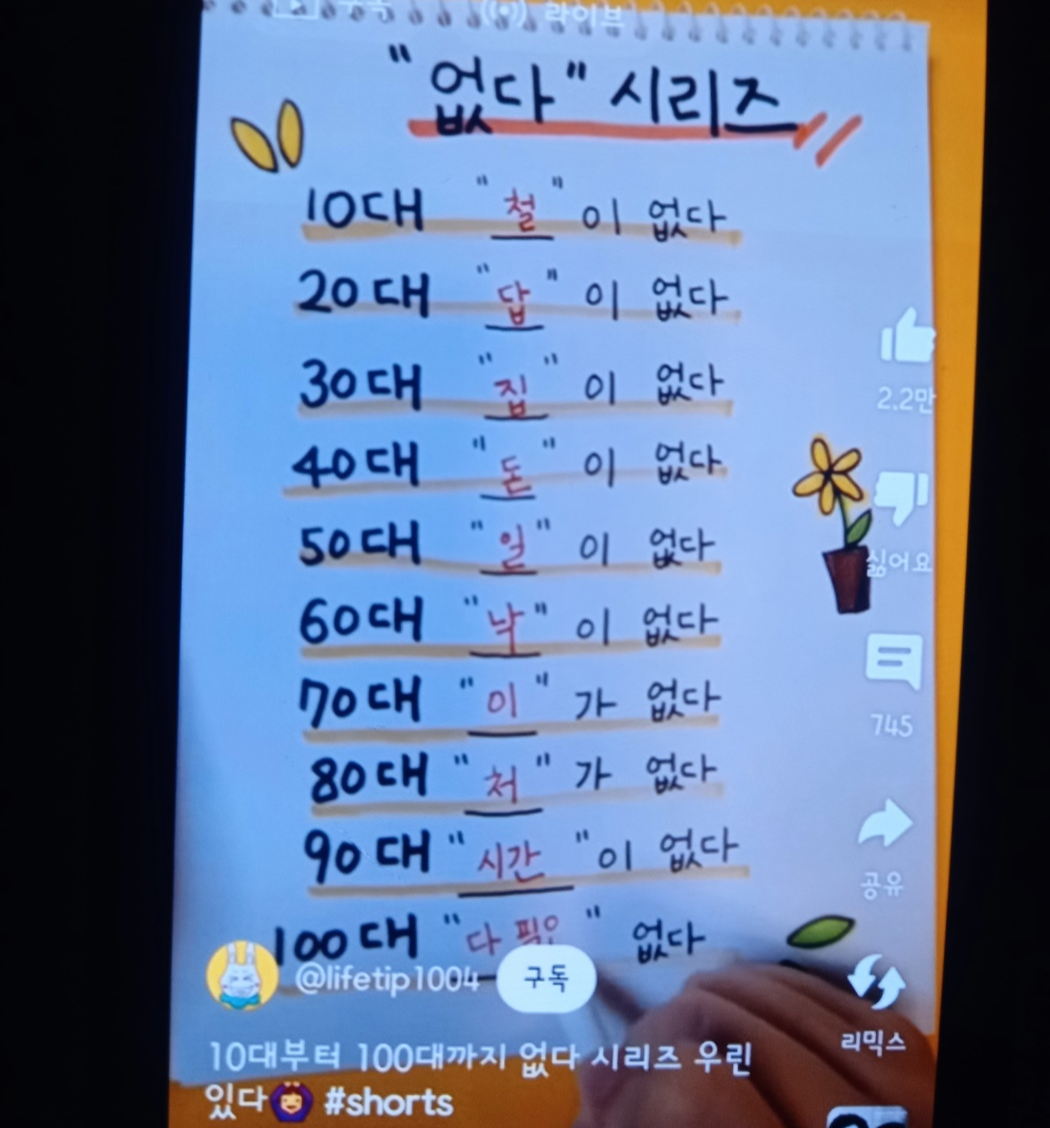 구독 라이브
"없다" 시리즈
10대 "철"이 없다
20대 "답"이 없다
30대 "집"이 없다
2.2만
40대 "돈"이 없다
50대 "일"이 없다
싫어요
60대 "낙"이 없다
70대 "이"가 없다
745
80대 "처"가 없다
90대 "시간"이 없다
공유
100대 "다 필요" 없다
@lifetip1004 구독
리믹스
10대부터 100대까지 없다 시리즈 우린
있다🙆 #shorts